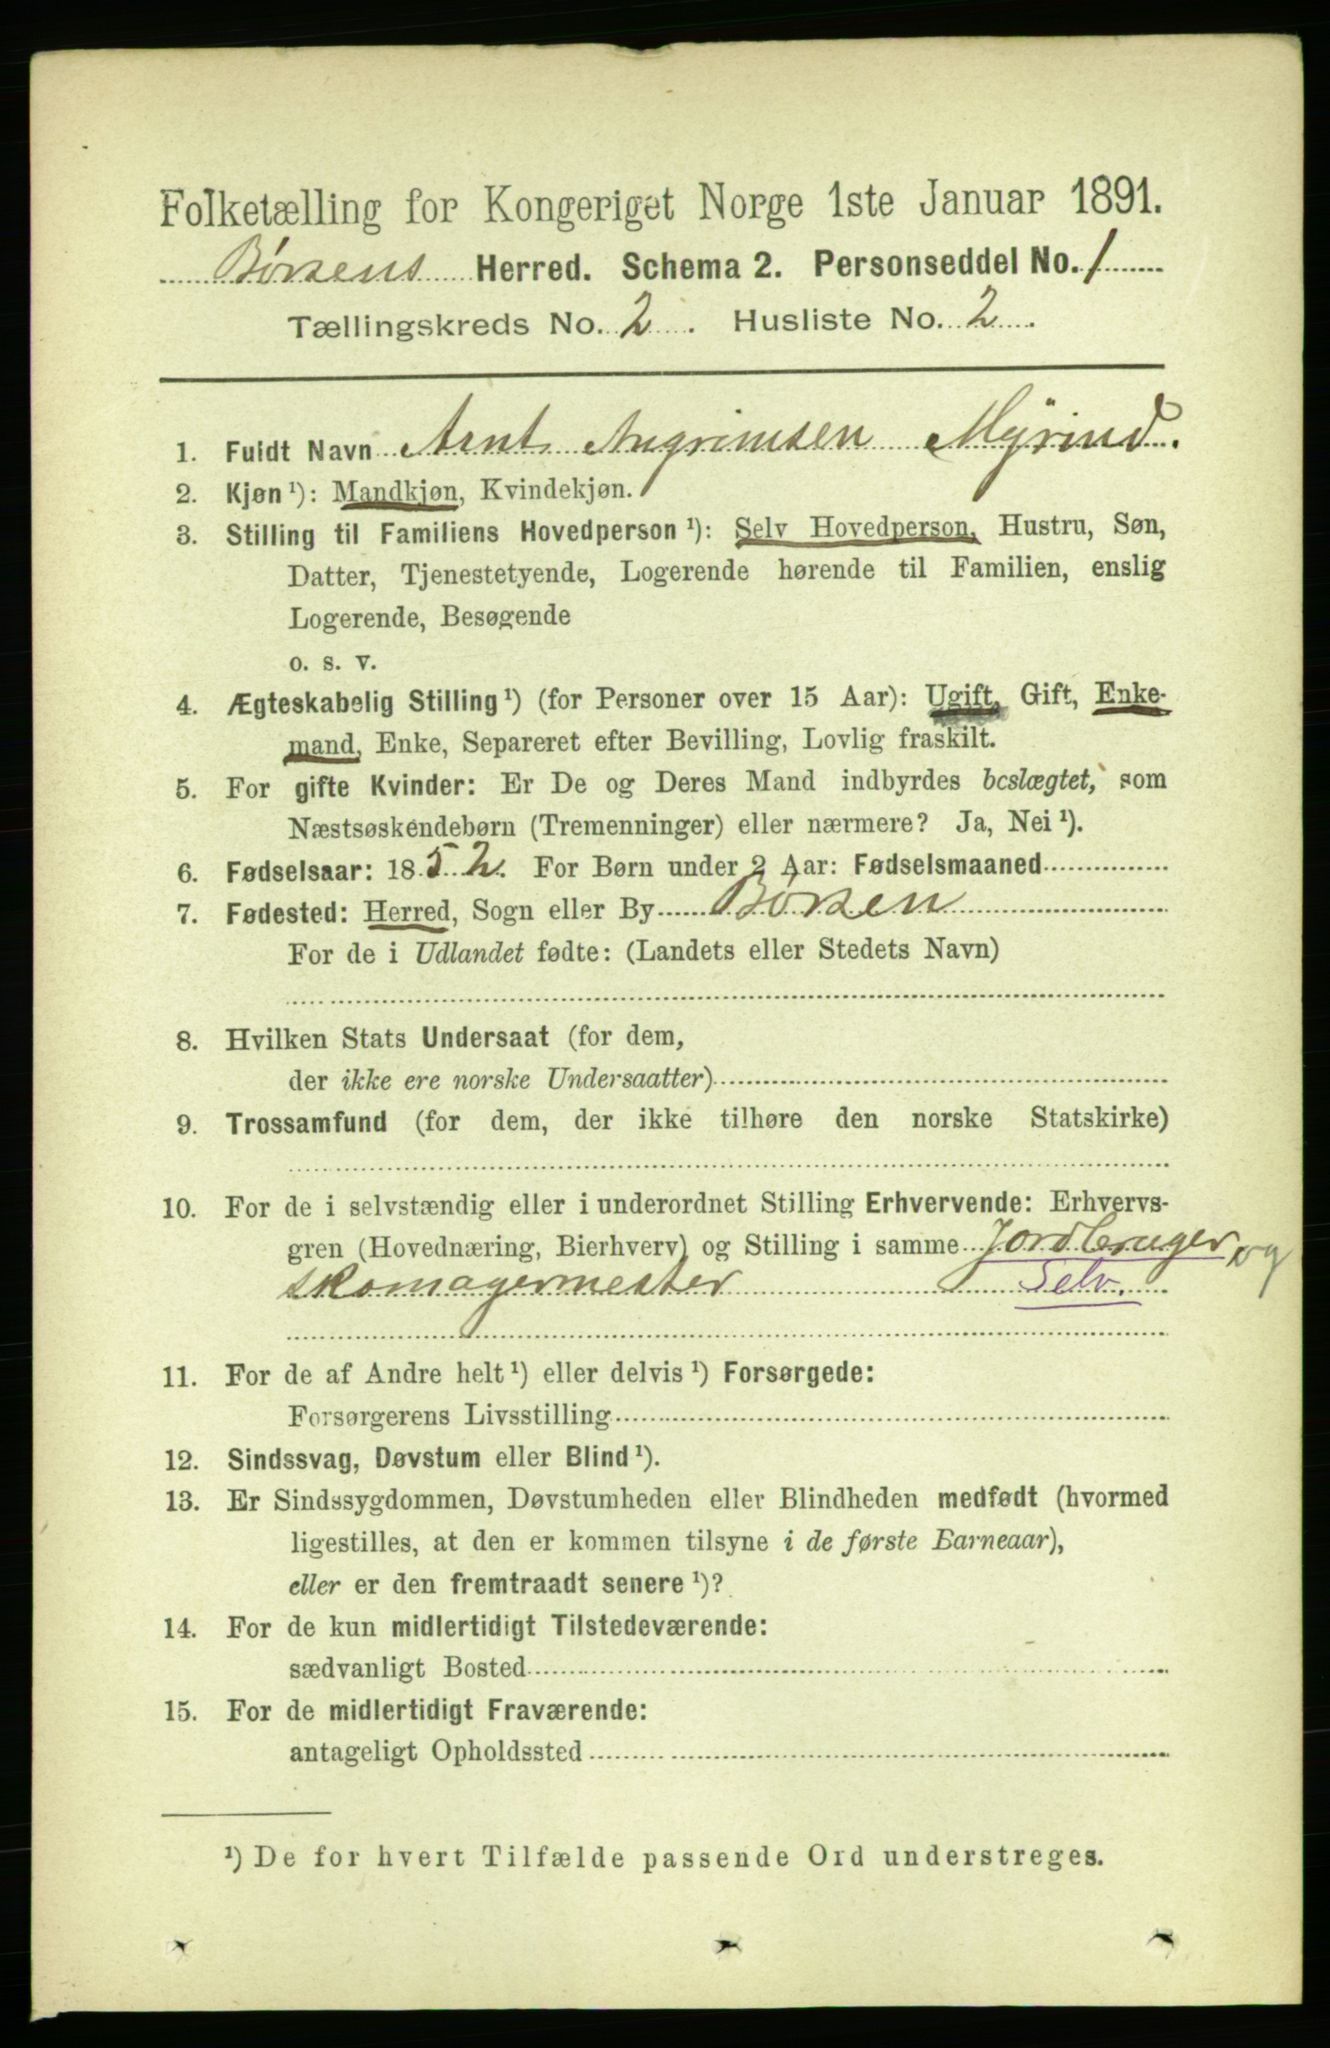 Folketælling for Kongeriget Norge 1ste Januar 1891.
Børsens Herred. Schema 2. Personseddel No. 1
Tællingskreds No. 2. Husliste No. 2.
1. Fuldt Navn Arnt Angrimsen Myrind.
2. Kjøn ¹): Mandkjøn, Kvindekjøn.
3. Stilling til Familiens Hovedperson ¹): Selv Hovedperson, Hustru, Søn,
Datter, Tjenestetyende, Logerende hørende til Familien, enslig
Logerende, Besøgende
o. s. v.
4. Ægteskabelig Stilling ¹) (for Personer over 15 Aar): Ugift, Gift, Enke-
mand, Enke, Separeret efter Bevilling, Lovlig fraskilt.
5. For gifte Kvinder: Er De og Deres Mand indbyrdes beslægtet, som
Næstsøskendebørn (Tremenninger) eller nærmere? Ja, Nei ¹).
6. Fødselsaar: 1852. For Børn under 2 Aar: Fødselsmaaned
7. Fødested: Herred, Sogn eller By Børsen
For de i Udlandet fødte: (Landets eller Stedets Navn)
8. Hvilken Stats Undersaat (for dem,
der ikke ere norske Undersaatter)
9. Trossamfund (for dem, der ikke tilhøre den norske Statskirke)
10. For de i selvstændig eller i underordnet Stilling Erhvervende: Erhvervs-
gren (Hovednæring, Bierhverv) og Stilling i samme Jordbruger og
skomagermester Selv.
11. For de af Andre helt ¹) eller delvis ¹) Forsørgede:
Forsørgerens Livsstilling
12. Sindssvag, Døvstum eller Blind ¹).
13. Er Sindssygdommen, Døvstumheden eller Blindheden medfødt (hvormed
ligestilles, at den er kommen tilsyne i de første Barneaar),
eller er den fremtraadt senere ¹)?
14. For de kun midlertidigt Tilstedeværende:
sædvanligt Bosted
15. For de midlertidigt Fraværende:
antageligt Opholdssted
¹) De for hvert Tilfælde passende Ord understreges.